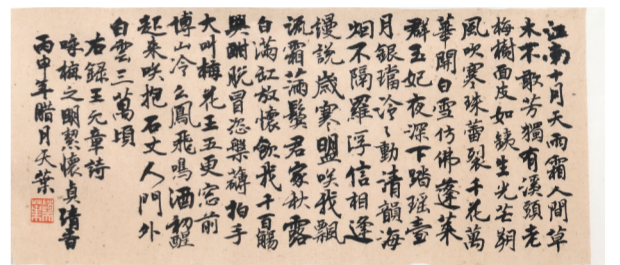 江南十月天雨霜人間草
木不敢芳獨有溪頭老
梅樹面皮如銕生光芒朔
風吹寒珠蕾裂千花萬
華開白雪仿佛蓬萊
群玉妃夜深下踏瑤臺
月銀璫泠々動清韻海
烟不隔羅浮信相逢
謾說歲寒盟咲我飄
流霜滿鬢君家秋露
白滿缸放懷飲我千百觴
興酣脫冒恣槃礴拍手
大叫梅花王五更窓前
博山冷么鳳飛鳴酒初醒
起來咲抱石丈人門外
白雲三萬頃
右錄王元章詩
咏梅之明絜懷貞靖者
丙申年臘月天葉